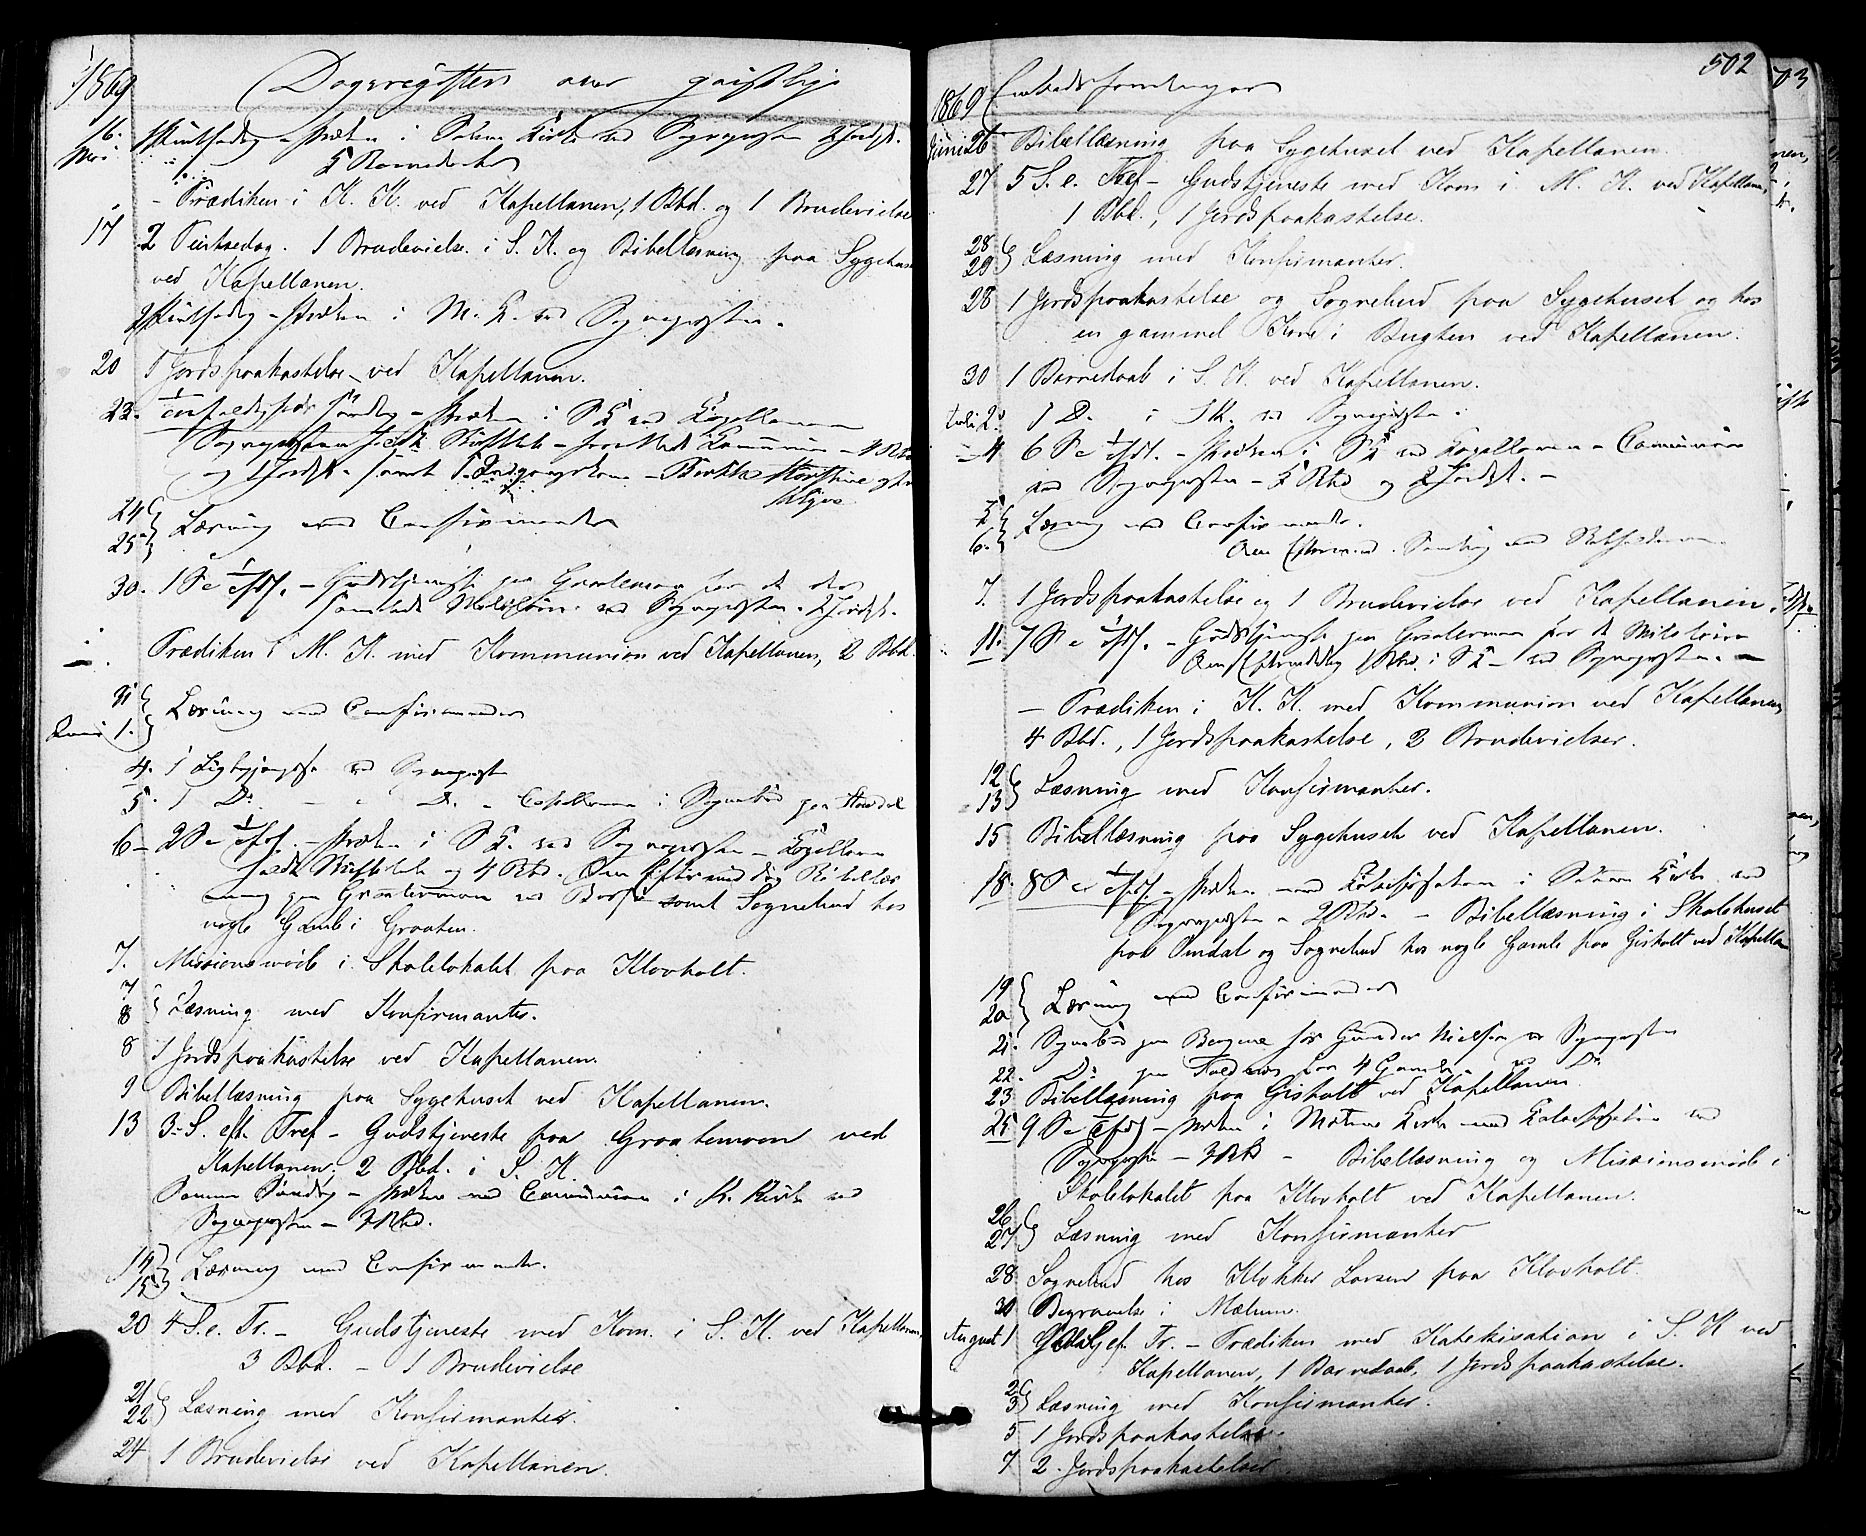 1869 Dagsregister over geistlige
16. Mai 1 Pintsedag – Præken i Solum Kirke ved Sognepræsten 2 Jordf.
5 Barnedaab
– Prædiken i K. K. ved Kapellanen, 1 Bbd. og 1 Brudevielse
17 2 Pintsedag. 1 Brudevielse i S. K. og Bibellæsning paa Sygehuset
ved Kapellanen.
2 Pintsedag – Præken i M. K. ved Sognepræsten.
20 1 Jordspaakastelse ved Kapellanen.
23. Søndag – Præken i S K ved Kapellanen
Sognepræsten holdt Skriftetale – forrettede Communion – 4 Bbd
og Jordf. – samt
24 } Læsning med Confirmander
25 }
30. 1 S e Tref. – Gudstjeneste paa Graatenmoen for de der
samlede ved Sognepræsten. 2 Jordf.
Prædiken i M. K. med Kommunion ved Kapellanen, 2 Bbd.
31 } Læsning med Confirmander
Juni 1. }
4. 1 ved Sognepræsten
5. 1 Do – – Do – Capellanen i Sognebud paa
6 – 2 S e Tref. – Præken i S K. ved Sognepræsten – Kapellanen
holdt Skriftetale og 4 Bbd. Om Eftermiddag Bibellæs-
ning paa Graatenmoen ved samt Sognebud hos
nogle Gamle i Graaten.
7. Missionsmøde i Skolelokalet paa Klovholt.
7 } Læsning med Konfirmanter.
8 }
8 1 Jordspaakastelse ved Kapellanen.
9 Bibellæsning paa Sygehuset ved Kapellanen.
13 3. S. eft. Tref – Gudstjeneste paa Graatenmoen ved
Kapellanen. 2 Bbd. i S. K.
Samme Søndag – Præken med Communion i K. Kirke ved
Sognepræsten – 3 Bbd.
14 } Læsning med Confirmander.
15. }
20 4 S. e. Tr. – Gudstjeneste med Kom. i S. K. ved Kapellanen,
3 Bbd. – 1 Brudevielse
21 } Læsning med Konfirmanter.
22 }
24 1 Brudevielse ved Kapellanen.
502
1869 Embedsforretninger
Juni 26 Bibellæsning paa Sygehuset ved Kapellanen.
27 5 S. e. Tref – Gudstjeneste med Kom i M. K. ved Kapellanen,
1 Bbd., 1 Jordspaakastelse.
28 } Læsning med Konfirmanter.
29 }
28 1 Jordspaakastelse og Sognebud paa Sygehuset og hos
en gammel Kone i Bugten ved Kapellanen.
30 1 Barnedaab i S. K. ved Kapellanen.
Juli 2. 1 D. i S K. ved Sognepræsten.
– 4 6 S e Tref. – Præken i S K ved Kapellanen – Communion
ved Sognepræsten – 5 Bbd og 2 Jordf. –
5 } Læsning med Confirmander.
6. } Om Eftermid.
7. 1 Jordspaakastelse og 1 Brudevielse ved Kapellanen.
11. 7 S e Tref. – Gudstjeneste paa Graatenmoen for
Om Eftermiddag 1 Bbd. i S K – ved Sognepræsten. –
– Prædiken i K. K. med Kommunion ved Kapellanen,
4 Bbd., 1 Jordspaakastelse, 2 Brudevielser.
12 } Læsning med Konfirmanter.
13 }
15 Bibellæsning paa Sygehuset ved Kapellanen.
18. 8 S e Tref. – Præken med Katechisation i Solum Kirke ved
Sognepræsten – 2 Bbd. – Bibellæsning i Skolehuset
paa Omdal og Sognebud hos nogle Gamle paa Gisholt ved Kapellan
19 } Læsning med Confirmander
20 }
21. Sognebud paa Bergene hos Gunder Nielsen ved Sognepræsten
22. Do paa hos 4 Gamle ved Do
23 Bibellæsning paa Gisholt ved Kapellanen.
25 9 S e Tref – Præken i Mælum Kirke med Katechisation ved
Sognepræsten – 3 Bbd – Bibellæsning og Missionsmøde i
Skolelokalet paa Klovholt ved Kapellanen.
26 } Læsning med Konfirmanter
27 }
28 Sognebud hos Klokker Larsen paa Klovholt.
30 Begravelse i Mælum.
August 1 Tr. – Prædiken med Katekisation i S. K ved
Kapellanen, 1 Barnedaab, 1 Jordspaakastelse.
2 } Læsning med Konfirmanter.
3 }
5 1 Jordspaakastelse.
7 2 Jordspaakastelser.